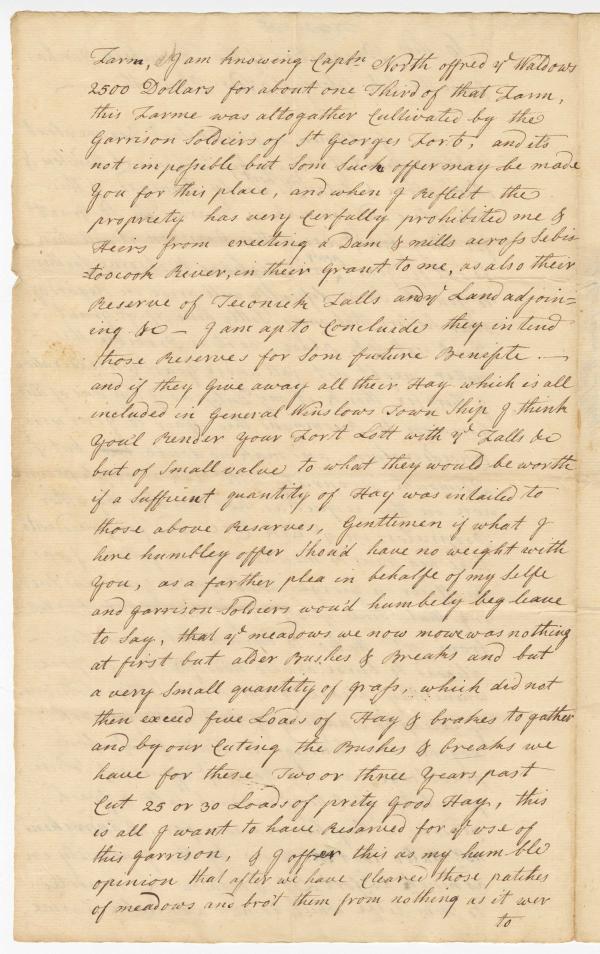 Farm, I am knowing Captn North offred ye Waldows
2500 Dollars for about one Third of that Farm,
this Farme was altogather Cultivated by the
Garrison Soldiers of St Georges Fort, and its
not impossible but Som Such offer may be made
You for this place, and when I Reflect the
propriety has very Cerfully prohibited me &
Heirs from erecting a Dam & mills across Sebis
=toocook River, in their Grant to me, as also their
Reserve of Teconick Falls and ye Land adjoin=
ing &c — I am apt to Concluide they intend
those Reserves for Som future Benifite. —
and if they Give away all their Hay which is all
included in General Winslows Town Ship I think
You'l Render Your Fort Lott with ye Falls &c
but of Small value to what they would be worth
if a Suffient quantity of Hay was intailed to
those above Resarves, Gentlemen if what I
here humbley offer Shou'd have no weight with
You, as a farther plea in behalfe of my Selfe
and garrison Soldiers wou'd humbely beg leave
to Say, that ye meadows we now mowe was nothing
at first but alder Bushes & Breaks and but
a very Small quantity of grass, which did not
then exceed five Loads of Hay & brakes to gather
and by our Cuting the Bushes & breaks we
have for these Two or three Years past
Cut 25 or 30 Loads of prety Good Hay, this
is all I want to have Resarved for ye use of
this garrison, & I offer this as my humble
opinion that after we have Cleared those patches
of meadows and brot them from nothing as it wer
to